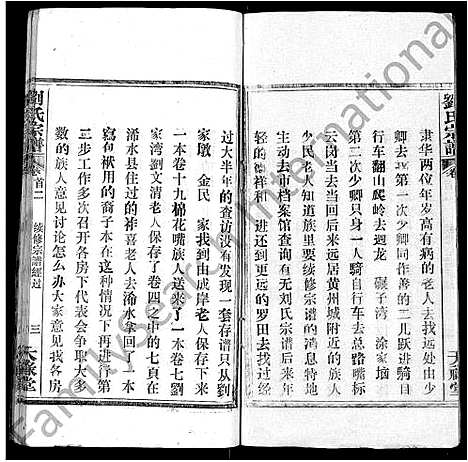 劉氏宗譜
卷
隶华两位年岁高有病的老人去找远处由少
卿去 第一次少卿同作善的二儿跃进骑自
行车翻山爬岭去廻龙 碾子湾 涂家垴
第二次少卿只身一人骑自行车去总路嘴标
云岗当去当回后来还去黄州城附近的族人
少民等人知道族里要续修宗谱的消息特地
主动去市档案馆查询有无刘氏宗谱后来
较轻的德祥和 进还到更远的罗田去找经
六祿堂
过大半年的查访没有发现一套存谱只从到
家墩 金民 家我到由成岸老人保存了
一本卷十九棉花嘴族人送来了一本卷七劉
家湾劉文清老人保存了卷四中的七頁在
浠水县住过的神喜老人去浠水拿回了一本
寫句袱用的裔子本在这种情况下再进行第
三步工作多次召开各房下代表会争取大多
数的族人意见讨论怎么办大家意见我各房
劉氏宗譜
卷首二
续修宗谱经过
三
六祿堂
Familysearch International